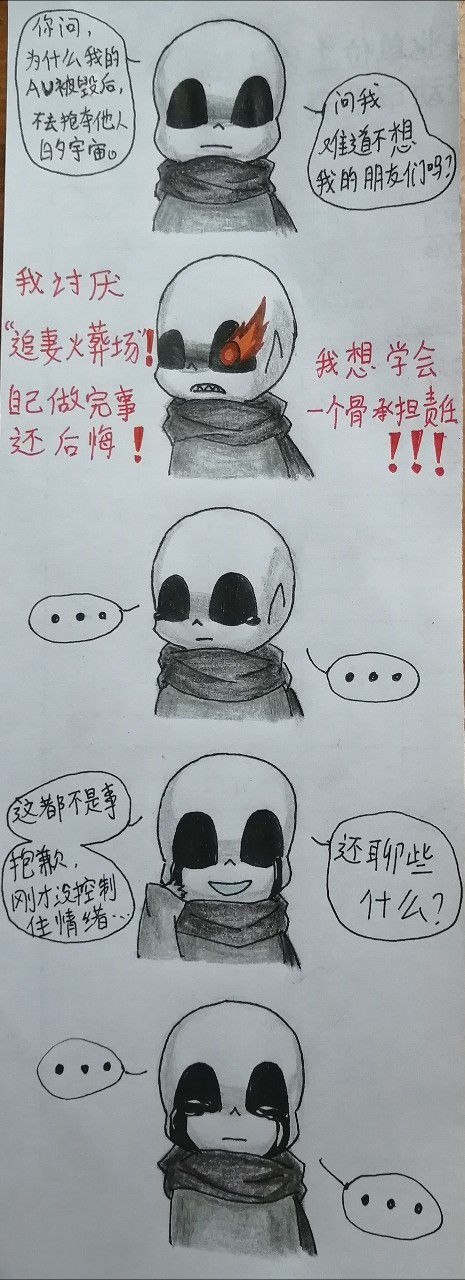 你问,
为什么我的
AU被毁后,
不去抱奔他人
旳宇宙。
问我
难道不想
我的朋友们吗?
我讨厌
“追妻火葬场”!
自己做完事
还后悔!
我想学会
一个骨承担责任
!!!
...
...
这都不是事
抱歉,
刚才没控制
住情绪...
还聊些
什么?
...
...